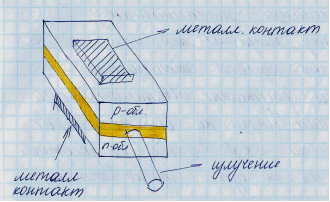 металл. контакт
p-обл.
n-обл
излучение
металл
контакт